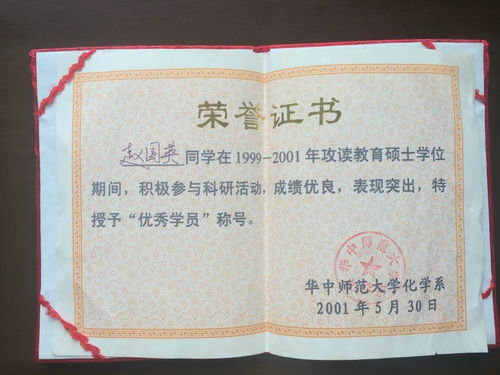 荣誉证书
赵国英同学在1999–2001年攻读教育硕士学位
期间，积极参与科研活动，成绩优良，表现突出，特
授予“优秀学员”称号。
华中师范大学
华中师范大学化学系
2001年5月30日